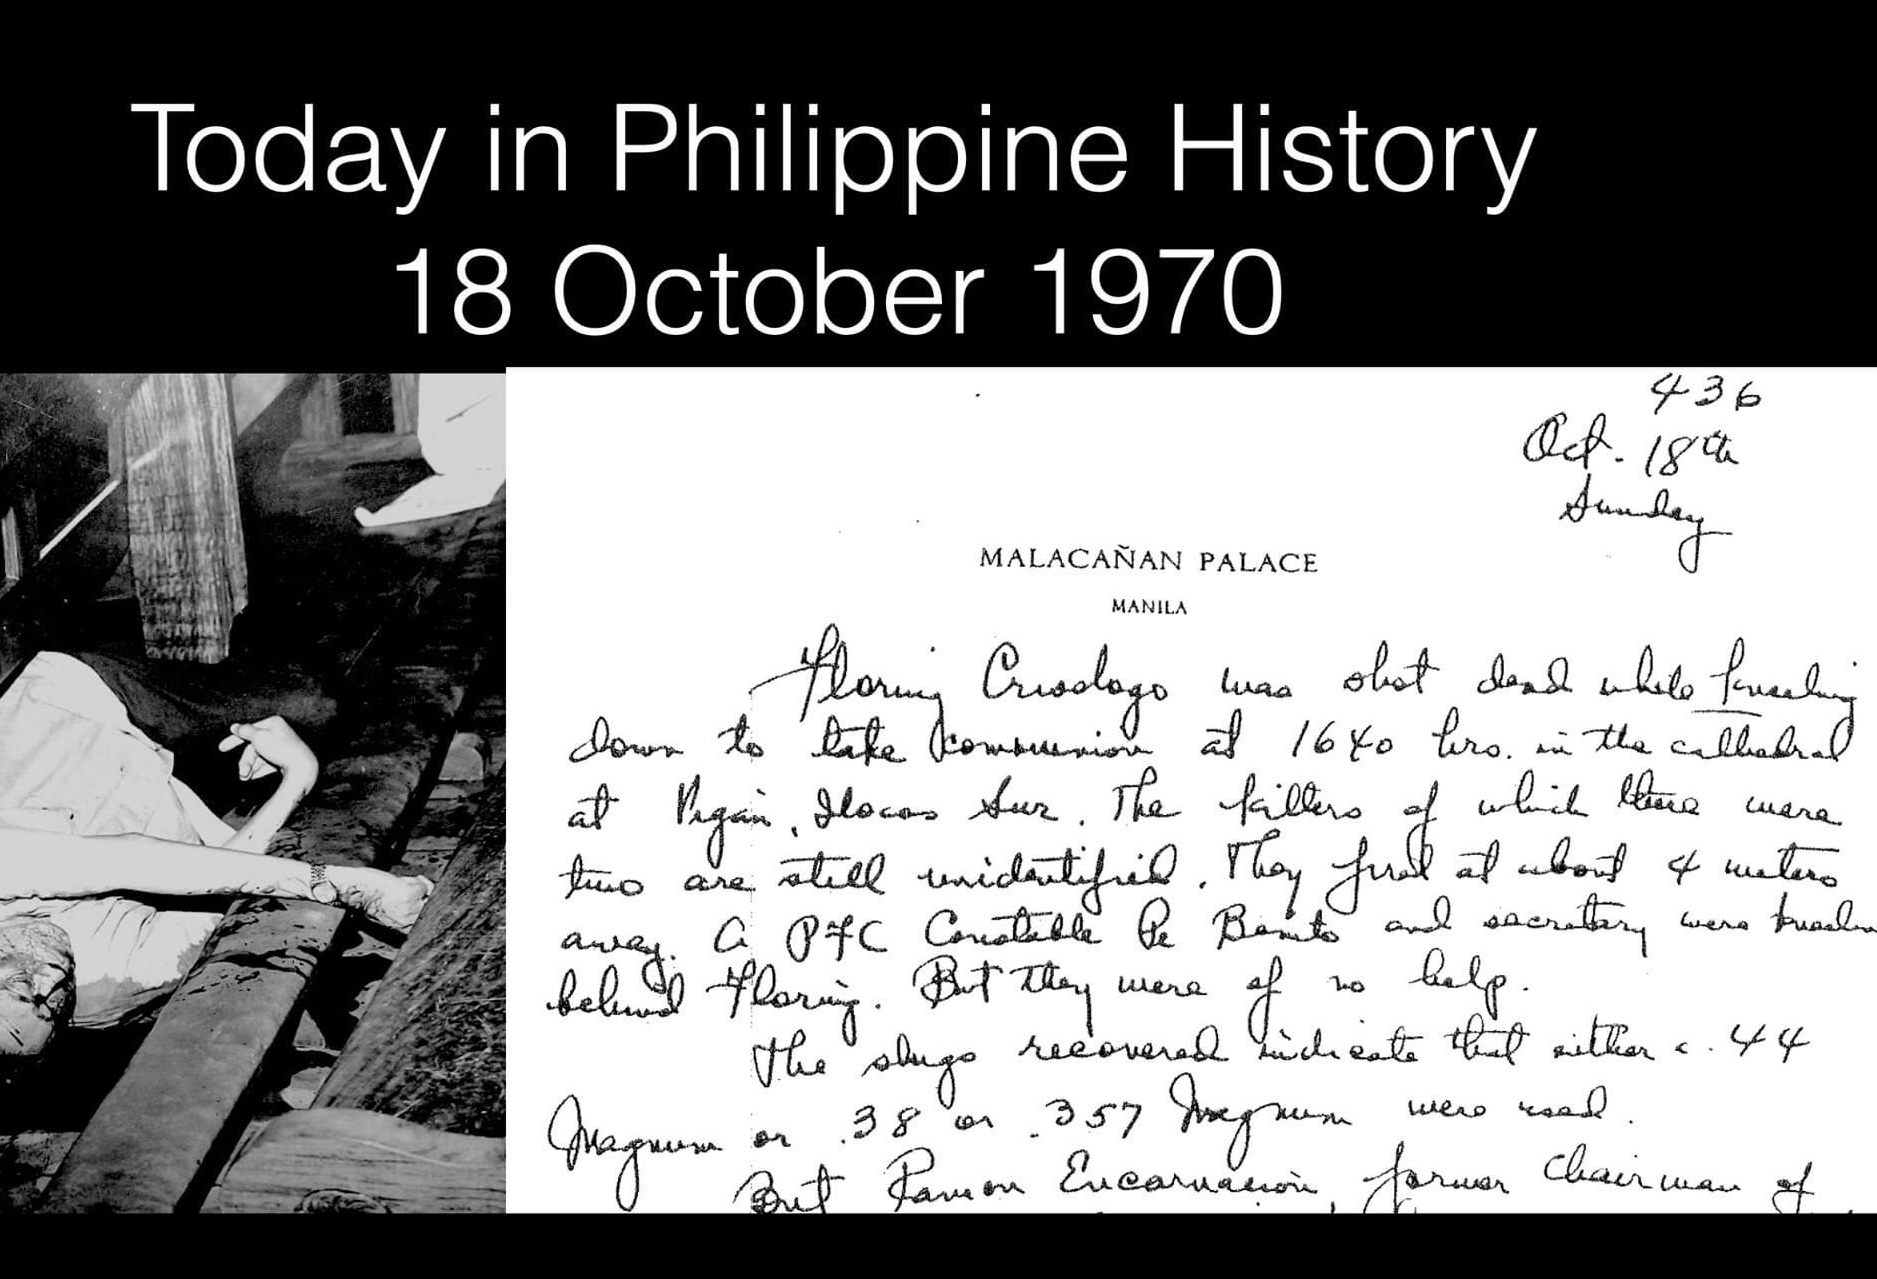 Today in Philippine History
18 October 1970
436
Oct. 18th
Sunday
MALACAÑAN PALACE
MANILA
Floring Crisologo was shot dead while kneeling
down to take communion at 1640 hrs. in the cathedral
at Vigan, Ilocos Sur. The killers of which there were
two are still unidentified. They fired at about 4 meters
away. A PFC Constable De Benito and secretary were kneelin
behind Floring. But they were of no help.
The slugs recovered indicate that either a .44
Magnum or .38 or .357 Magnum were used.
But Ramon Encarnacion, former Chairman of